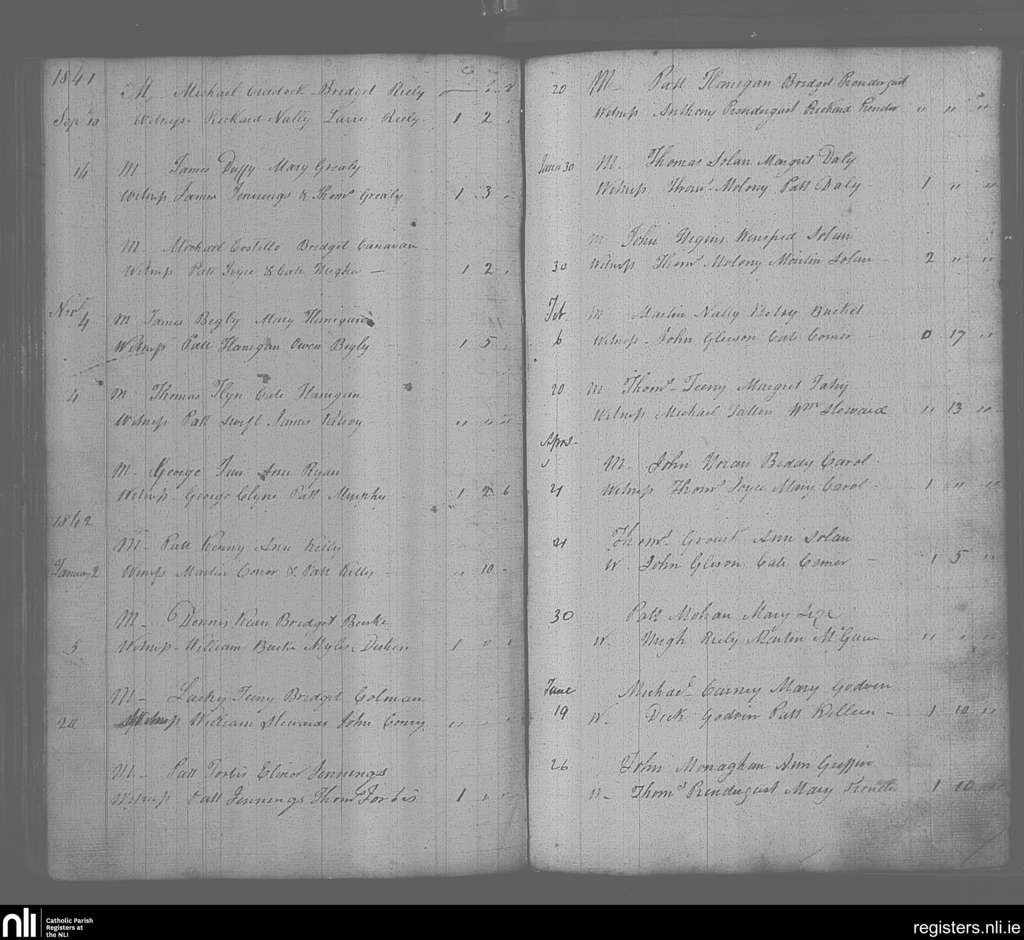 1841
M Michael Bridget Riely
Sep 10 Witness Richard Nally Riely 1 2
14 M James Duffy Mary Grealy
Witness James Jennings & Thoms Grealy 1 3
M Michael Costello Bridget Canavan
Witness Patt Joyce & Cate 1 2
Nov 4 M James Begly Mary Hanigan
Witness Patt Hanigan Owen Begly 1 5
4 M Thomas Flyn Cate Hanigan
Witness Patt Swift James
M George Ann Ryan
Witness George Clyne Patt Murphy 1 2 6
1842
M Patt Kenny Ann Kelly
January 2 Witness Martin Conor & Patt Kelly 10
M Dennis Kean Bridget Bourke
5 Witness William Burke Myles 1 0
M Lacky Feeny Bridget Colman
20 Witness William Stewards John Conry
M Patt Forbis Elinor Jennings
Witness Patt Jennings Thoms Forbis 1
20 M Patt Hanigan Bridget Prendergast
Witness Anthony Prendergast Richard Prender
Janu 30 M Thomas Solan Margret Daly
Witness Thoms Molony Patt Daly 1 " "
M John Higins Winifred Solan
30 Witness Thoms Molony Martin Solan 2 " "
Feb M Martin Nally Betsy
6 Witness John Gleeson Cate Comer 0 17 "
20 M Thoms Feeny Margret Fahy
Witness Michael Wm Steward " 13 "
April
M John Biddy Carol
21 Witness Thoms Joyce Mary Carol 1 " "
21 Thoms Ann Solan
W John Gleson Cate Comer 1 5 "
30 Patt Mohan Mary
W Hugh Riely Martin " " "
June Michael Mary Godwin
19 W Dick Godwin Patt Killeen 1 10 "
26 John Monaghan Ann Griffin
W Thoms Prendergast Mary 1 10
nli
Catholic Parish
Registers at
the NLI
registers.nli.ie